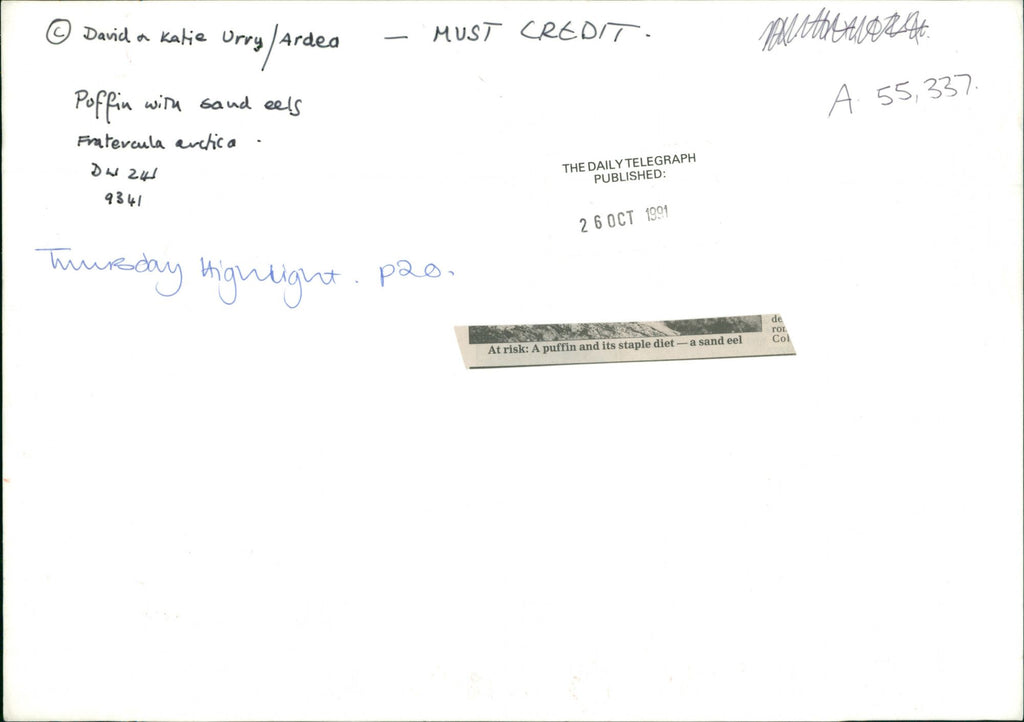 © David & Katie Urry/Ardea — MUST CREDIT.
A 55,337.
Puffin with sand eels
Fratercula arctica.
9341
THE DAILY TELEGRAPH
PUBLISHED:
26 OCT 1991
Thursday Highlight. p20.
de
ron
Col
At risk: A puffin and its staple diet — a sand eel